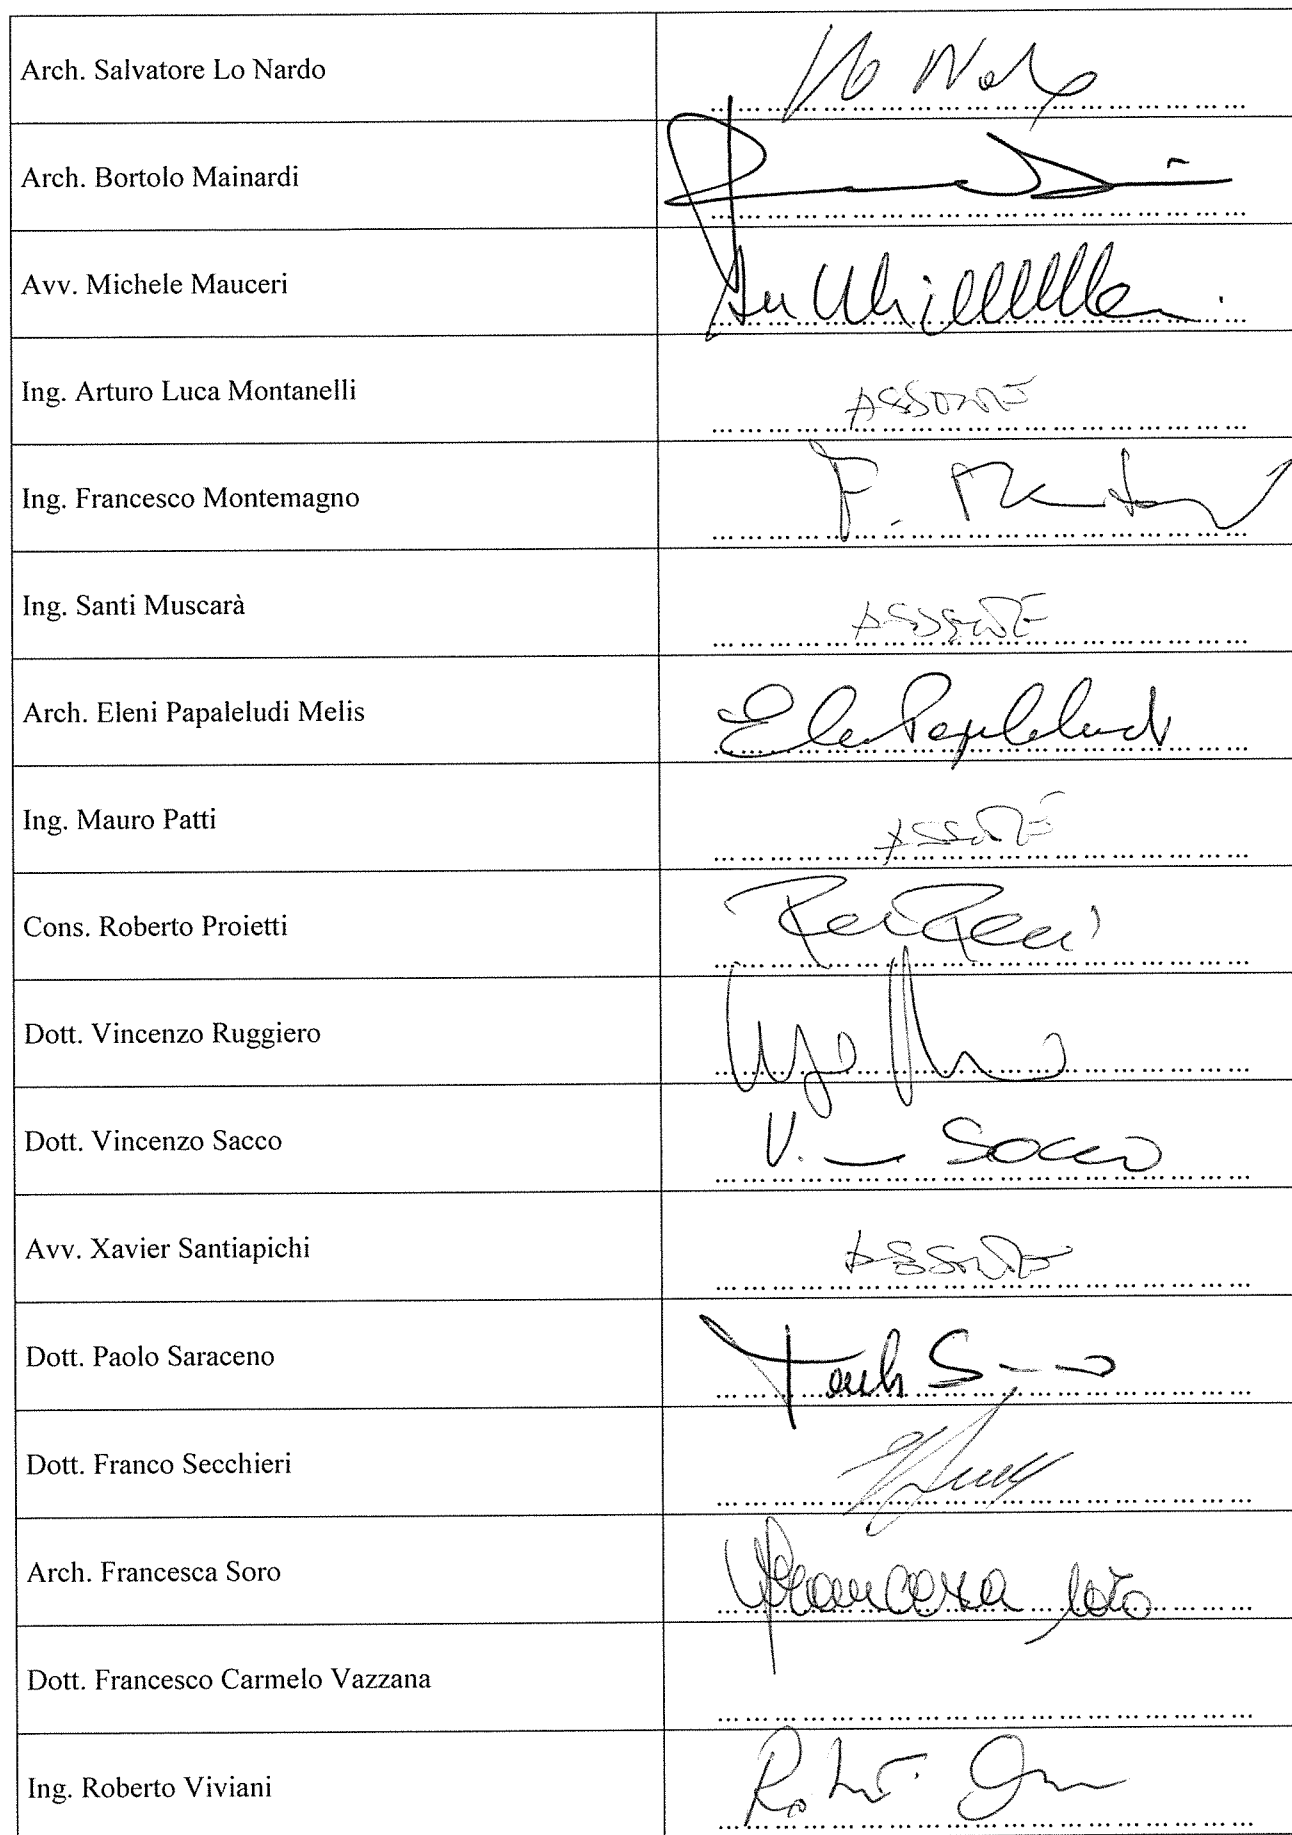 Arch. Salvatore Lo Nardo
Arch. Bortolo Mainardi
Avv. Michele Mauceri
Ing. Arturo Luca Montanelli ASSENTE
Ing. Francesco Montemagno F.
Ing. Santi Muscarà ASSENTE
Arch. Eleni Papaleludi Melis
Ing. Mauro Patti ASSENTE
Cons. Roberto Proietti
Dott. Vincenzo Ruggiero
Dott. Vincenzo Sacco V. Sacco
Avv. Xavier Santiapichi ASSENTE
Dott. Paolo Saraceno
Dott. Franco Secchieri
Arch. Francesca Soro Francesca Soro
Dott. Francesco Carmelo Vazzana
Ing. Roberto Viviani